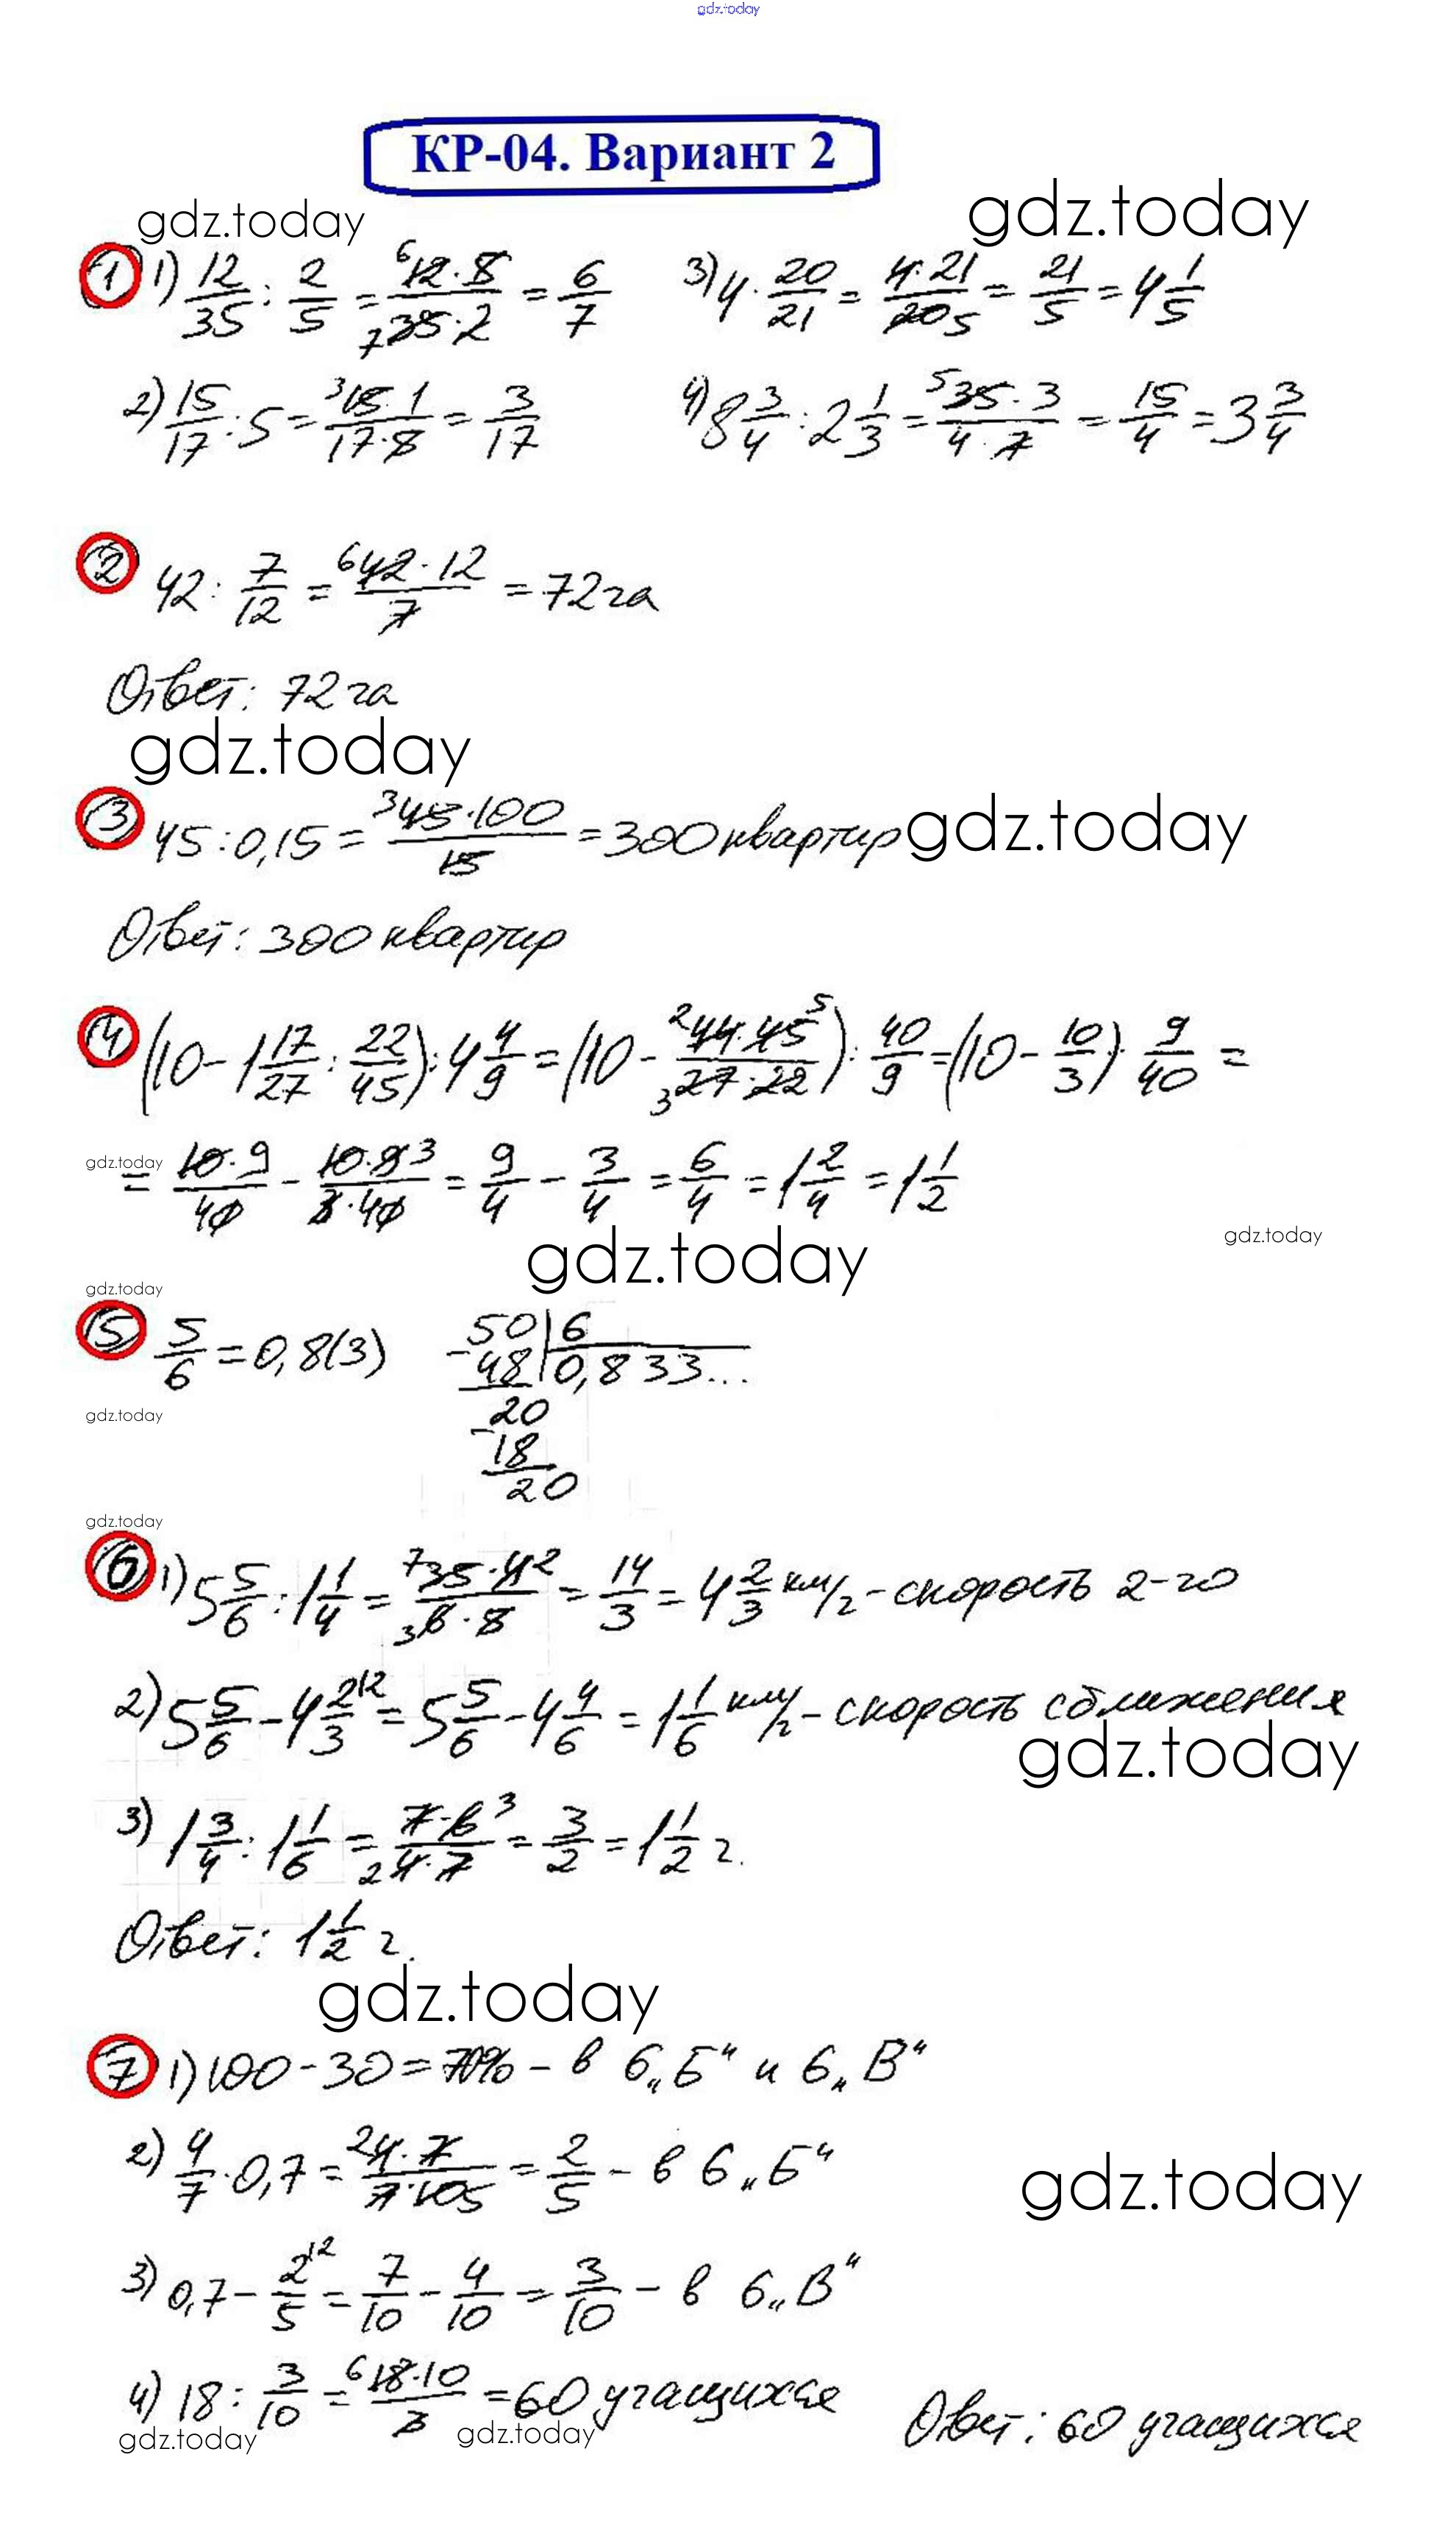 gdz.today
КР-04. Вариант 2
gdz.today
gdz.today
1 1) 12/35 : 2/5 = 12·5/35·2 = 6/7
3) 4 · 20/21 = 4·21/20 = 21/5 = 4 1/5
2) 15/17 : 5 = 15·1/17·5 = 3/17
4) 8 3/4 : 2 1/3 = 35·3/4·7 = 15/4 = 3 3/4
2 42 : 7/12 = 42·12/7 = 72 га
Ответ: 72 га
gdz.today
3 45 : 0,15 = 45·100/15 = 300 квартир
gdz.today
Ответ: 300 квартир
4 (10 - 1 17/27 : 22/45) : 4 4/9 = (10 - 44·45/27·22) : 40/9 = (10 - 10/3) · 9/40 =
gdz.today
= 10·9/40 - 10·9/3·40 = 9/4 - 3/4 = 6/4 = 1 2/4 = 1 1/2
gdz.today
gdz.today
gdz.today
5 5/6 = 0,8(3)
50 | 6
- 48 | 0,833...
20
- 18
20
gdz.today
gdz.today
6 1) 5 5/6 : 1 1/4 = 35·4/6·5 = 14/3 = 4 2/3 км/ч - скорость 2-го
2) 5 5/6 - 4 2/3 = 5 5/6 - 4 4/6 = 1 1/6 км/ч - скорость сближения
gdz.today
3) 1 3/4 : 1 1/6 = 7·6/4·7 = 3/2 = 1 1/2 ч.
Ответ: 1 1/2 ч.
gdz.today
7 1) 100 - 30 = 70% - в 6 „Б“ и 6 „В“
2) 4/7 · 0,7 = 4·7/7·10 = 2/5 - в 6 „Б“
gdz.today
3) 0,7 - 2/5 = 7/10 - 4/10 = 3/10 - в 6 „В“
4) 18 : 3/10 = 18·10/3 = 60 учащихся
Ответ: 60 учащихся
gdz.today
gdz.today